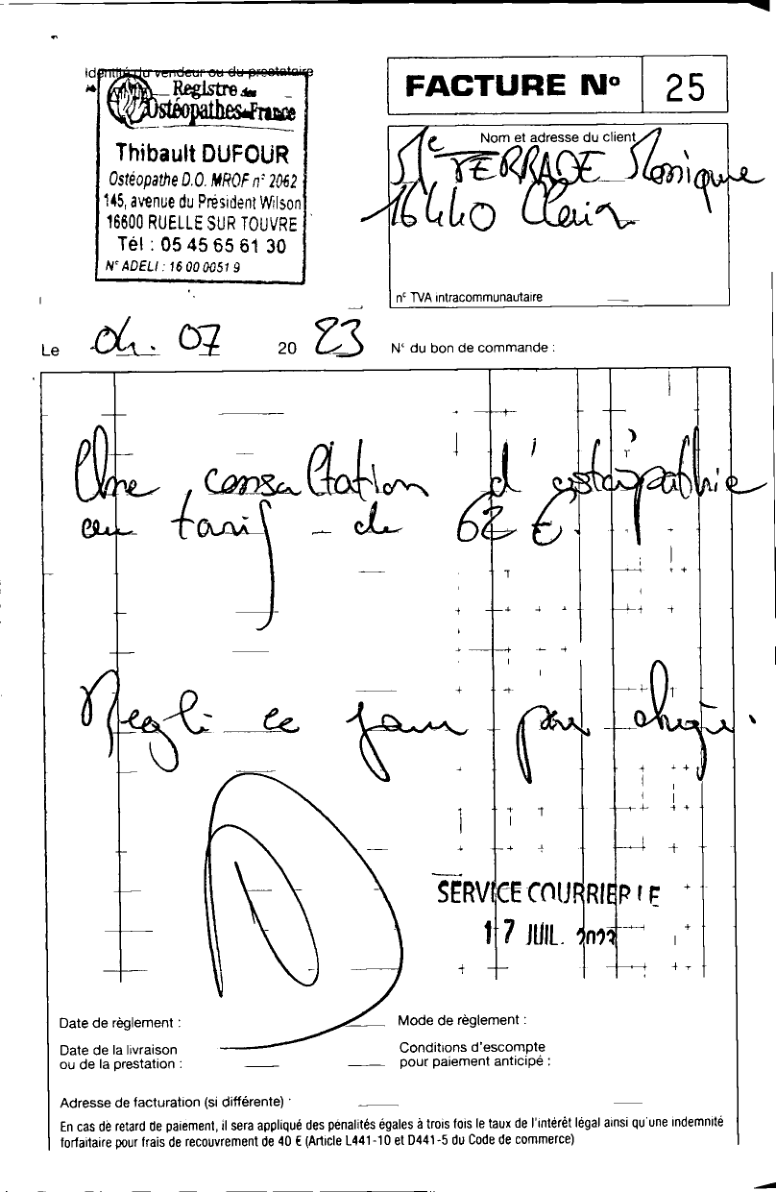 Identité du vendeur ou du prestataire
Registre des
Ostéopathes de France
Thibault DUFOUR
Ostéopathe D.O. MROF n° 2062
145, avenue du Président Wilson
16600 RUELLE SUR TOUVRE
Tél : 05 45 65 61 30
N° ADELI : 16 00 0051 9
FACTURE N° 25
Nom et adresse du client
Me TERRADE Monique
16440 Claix
n° TVA intracommunautaire
Le 04. 07 20 23
N° du bon de commande :
Une consultation d'ostéopathie
au tarif de 62 €.
Réglé ce jour par chèque.
SERVICE COURRIER LE
17 JUIL. 2023
Date de règlement :
Mode de règlement :
Date de la livraison
ou de la prestation :
Conditions d'escompte
pour paiement anticipé :
Adresse de facturation (si différente) :
En cas de retard de paiement, il sera appliqué des pénalités égales à trois fois le taux de l'intérêt légal ainsi qu'une indemnité
forfaitaire pour frais de recouvrement de 40 € (Article L441-10 et D441-5 du Code de commerce)